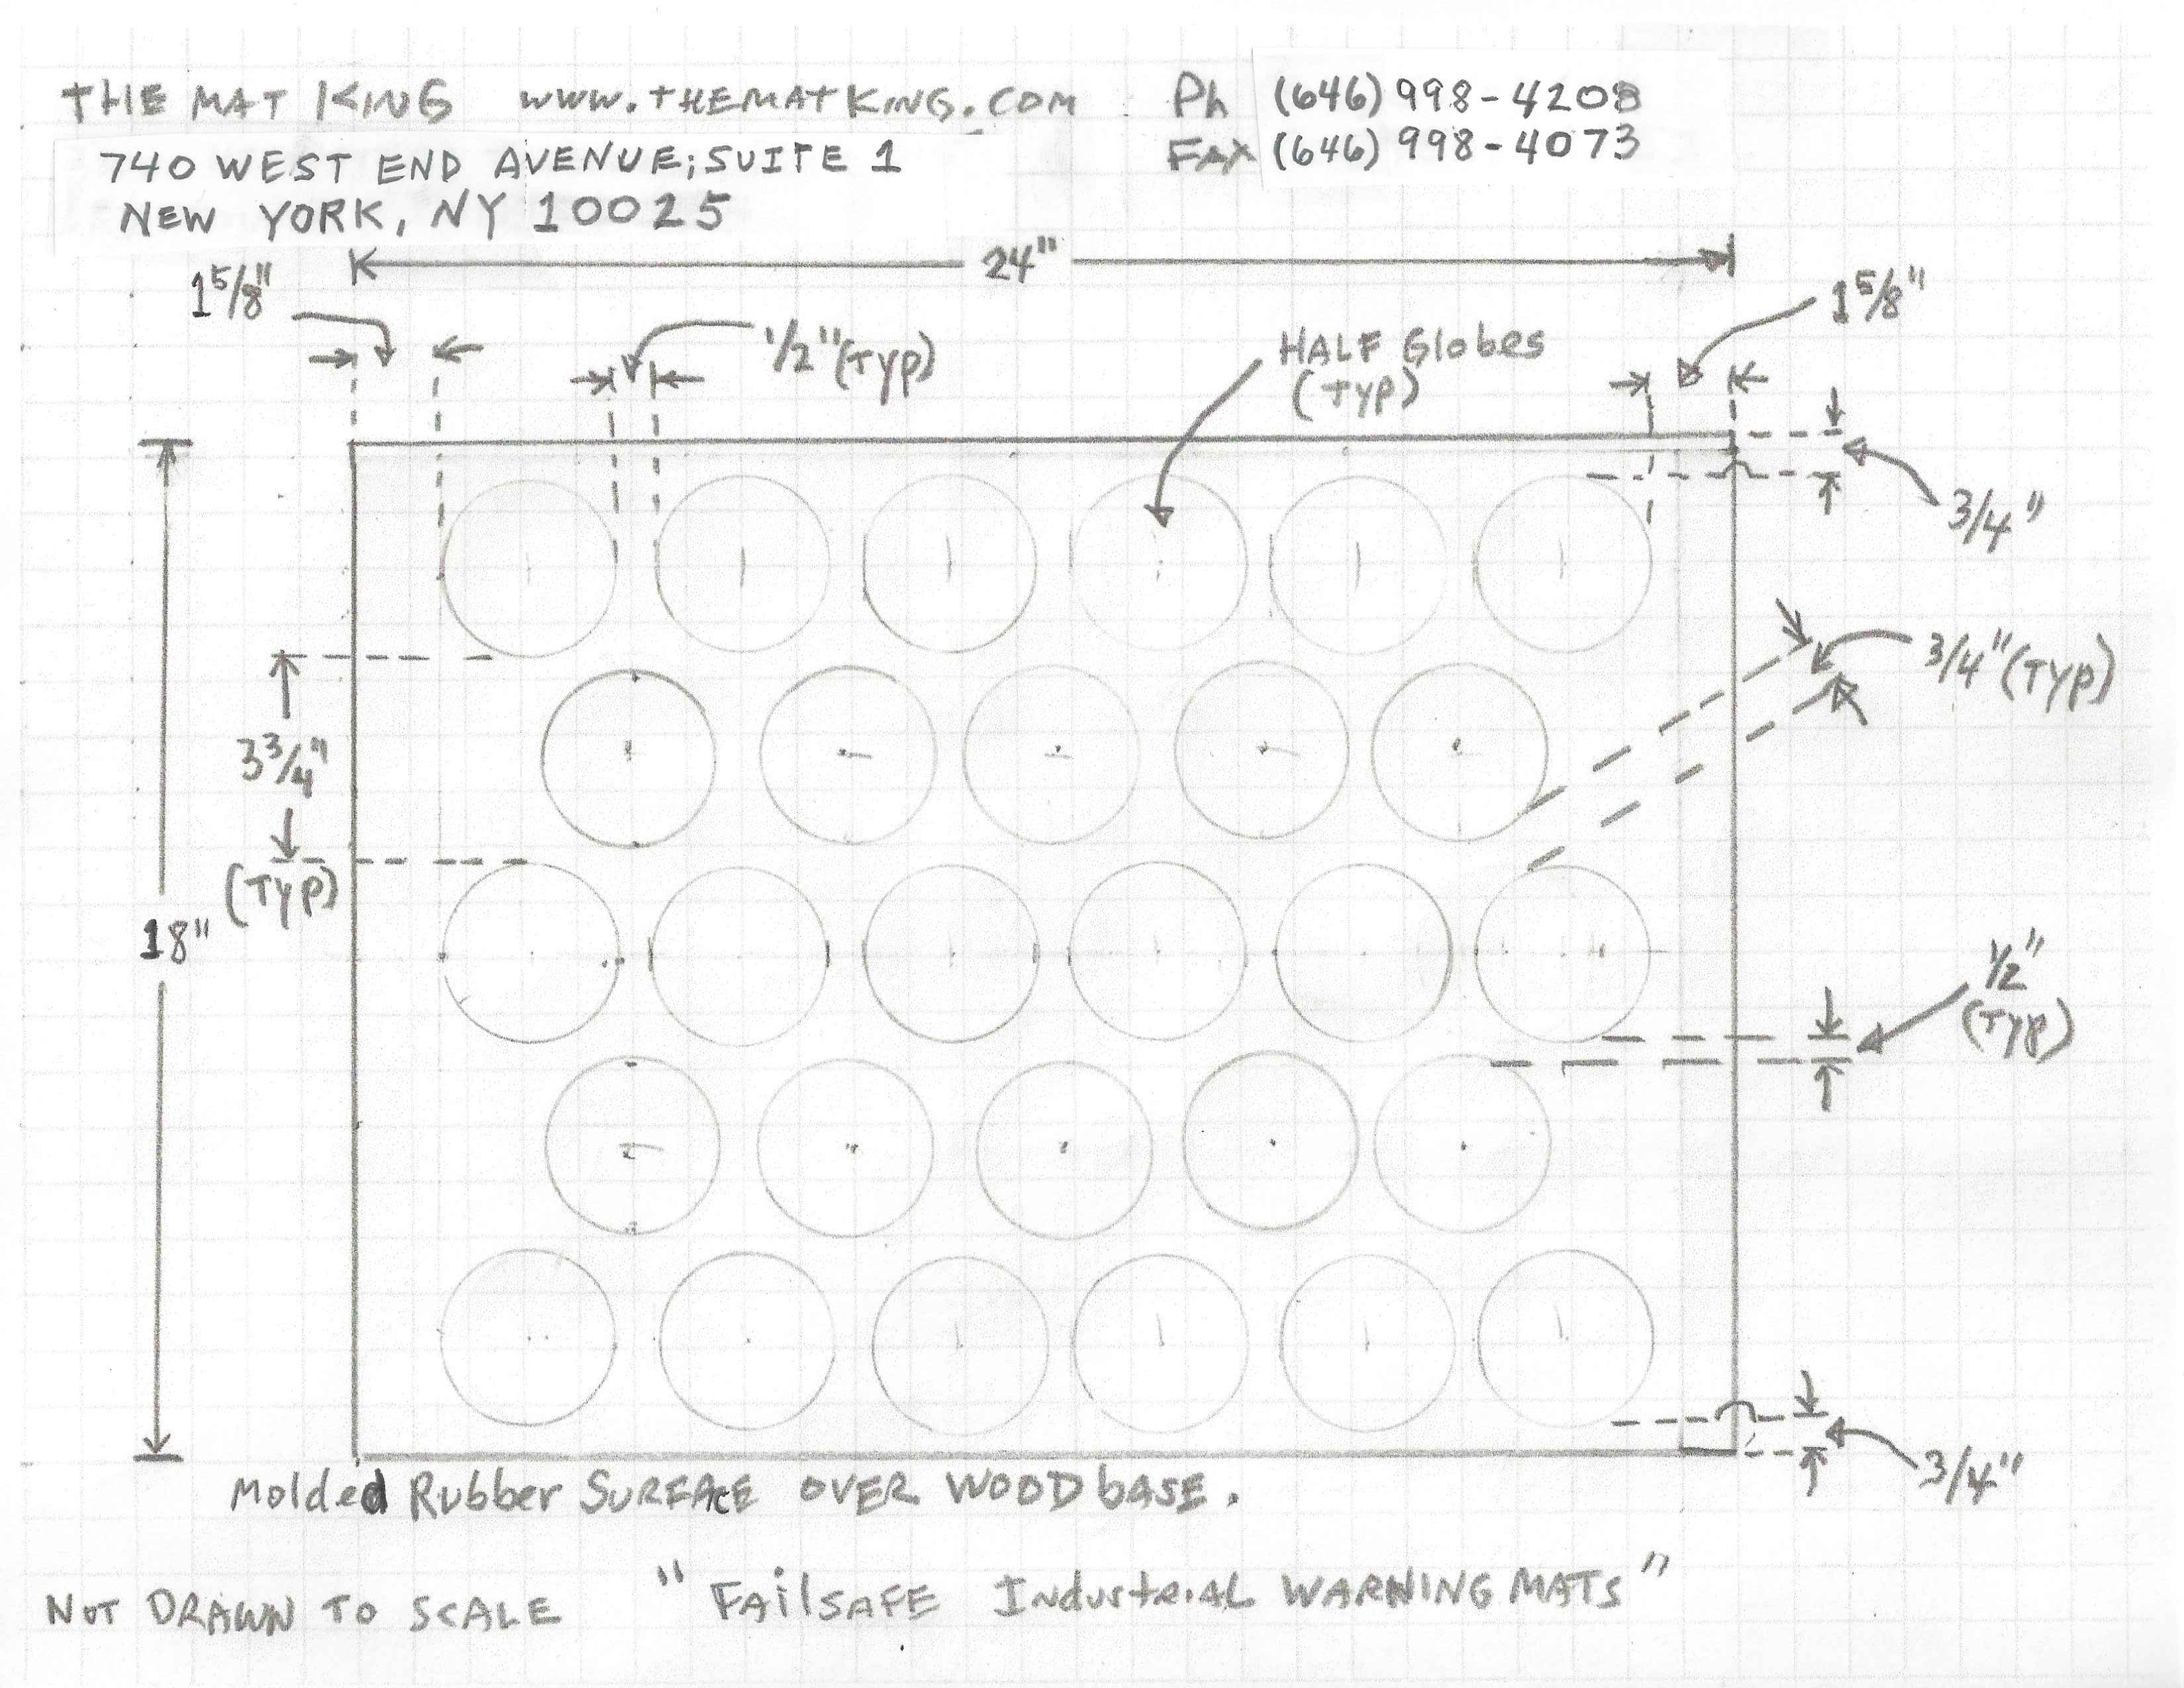 THE MAT KING www.THEMATKING.COM Ph (646) 998-4208
740 WEST END AVENUE; SUITE 1 FAX (646) 998-4073
NEW YORK, NY 10025
24"
1 5/8"
1 5/8"
1/2" (TYP)
HALF Globes
(TYP)
3/4"
3/4" (TYP)
3 3/4"
(TYP)
18"
1/2"
(TYP)
3/4"
Molded Rubber SURFACE OVER WOOD bASE.
NOT DRAWN TO SCALE "FAilSAFE IndustriAL WARNING MATS"